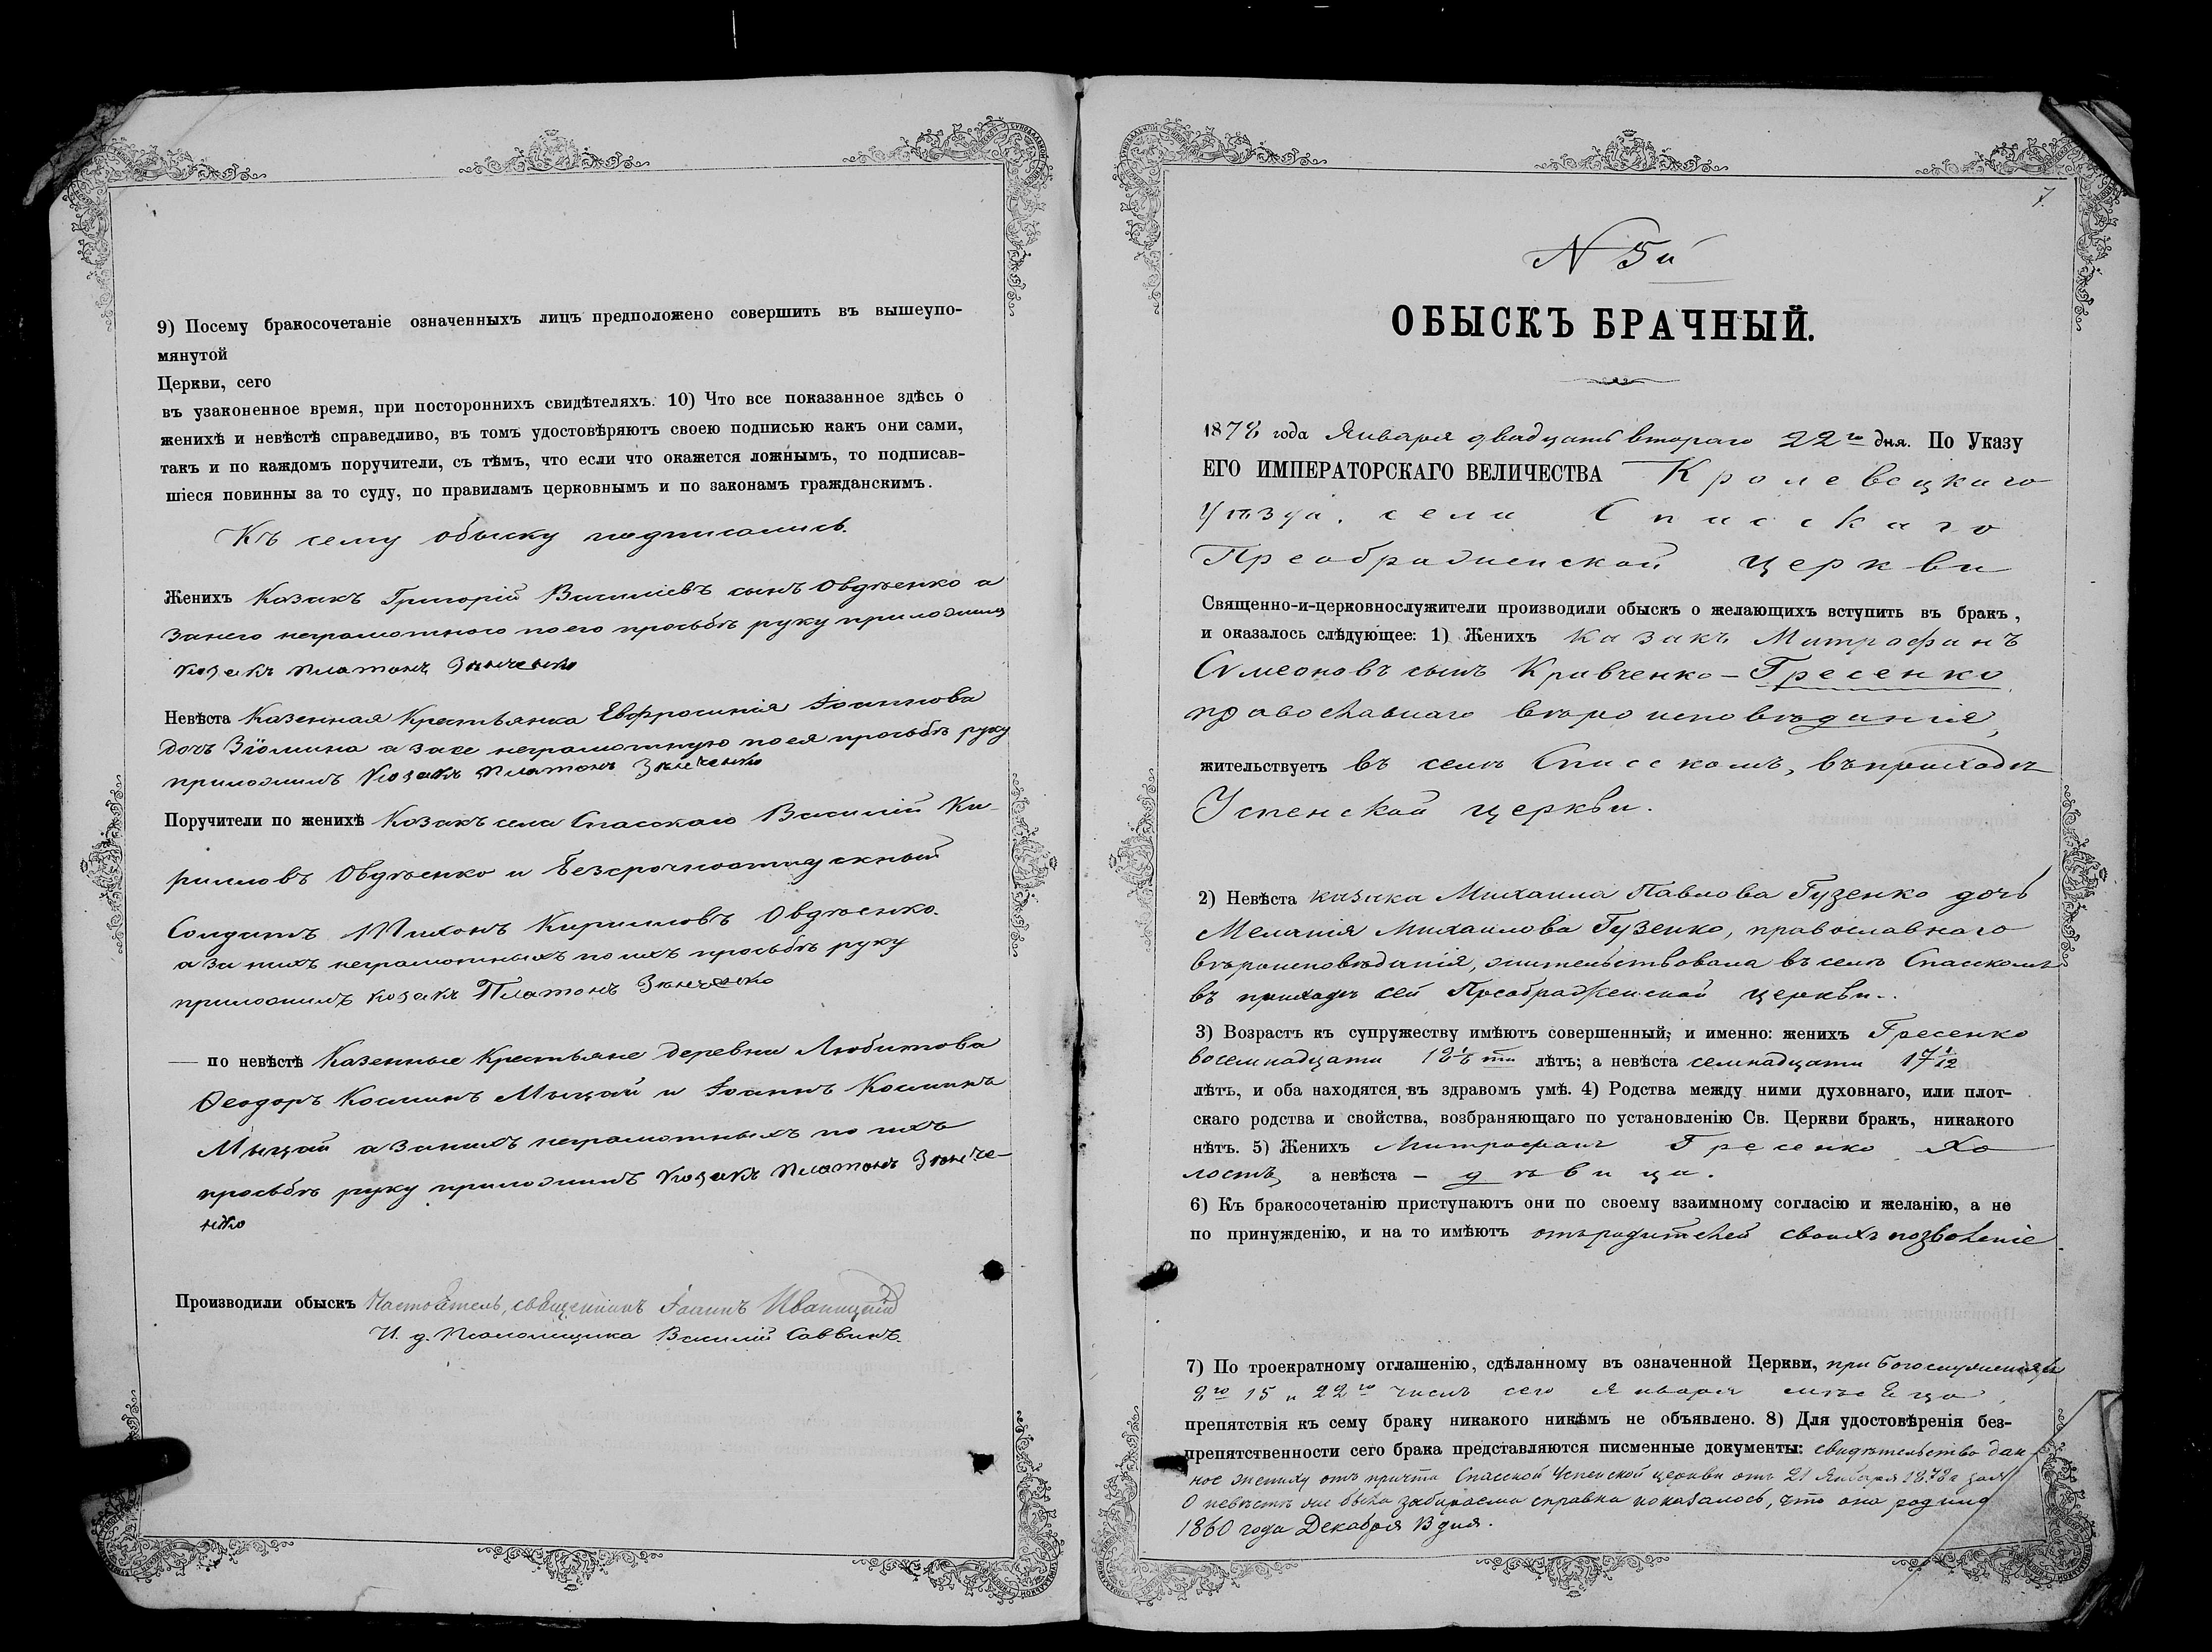 9) Посему бракосочетаніе означенныхъ лицъ предположено совершить въ вышеупо-
мянутой
Церкви, сего
въ узаконенное время, при постороннихъ свидѣтеляхъ. 10) Что все показанное здѣсь о
женихѣ и невѣстѣ справедливо, въ томъ удостовѣряютъ своею подписью какъ они сами,
такъ и по каждомъ поручители, съ тѣмъ, что если что окажется ложнымъ, то подписав-
шіеся повинны за то суду, по правиламъ церковнымъ и по законамъ гражданскимъ.
Къ сему обыску подписались.
Женихъ Козакъ Григорій Василіевъ сынъ Овдѣенко а
занего неграмотного по его просьбѣ руку приложилъ
козакъ Платонъ Зѣнченко
Невѣста Казенная Крестьянка Евфросинія Іоаннова
дочь Зіомина а за нее неграмотную по ея просьбѣ руку
приложилъ Козакъ Платонъ Зѣнченко
Поручители по женихѣ Козакъ села Спасскаго Василій Ки-
рилловъ Овдѣенко и безсрочноотпускный
Солдатъ Тихонъ Кирилловъ Овдѣенко.
а за нихъ неграмотныхъ по ихъ просьбѣ руку
приложилъ козакъ Платонъ Зѣнченко
— по невѣстѣ Казенные Крестьяне деревни Любитова
Ѳеодоръ Косминъ Мыцай и Іоаннъ Косминъ
Мыцай а занихъ неграмотныхъ по ихъ
просьбѣ руку приложилъ Козакъ Платонъ Зѣнче-
нко
Производили обыскъ Настоятель, священникъ Іоаннъ Иваницкій
И. д. Псаломщика Василій Саввинъ.
7.
N 5й
ОБЫСКЪ БРАЧНЫЙ.
1878 года Января двадцать втораго 22го дня. По Указу
ЕГО ИМПЕРАТОРСКАГО ВЕЛИЧЕСТВА Кролевецкаго
Уѣзда, села Спасскаго
Преображенской церкви
Священно-и-церковнослужители производили обыскъ о желающихъ вступить въ бракъ,
и оказалось слѣдующее: 1) Женихъ казакъ Митрофанъ
Сѵмеоновъ сынъ Кривченко-Гресенко
православнаго вѣроисповѣданія,
жительствуетъ въ селѣ Спасскомъ, въ приходѣ
Успенской церкви.
2) Невѣста казака Михаила Павлова Гузенко дочь
Меланія Михаилова Гузенко, православнаго
вѣроисповѣданія, жительствовала въ селѣ Спасскомъ
въ приходѣ сей Преображенской церкви.
3) Возрастъ къ супружеству имѣютъ совершенный; и именно: женихъ Гресенко
восемнадцати лѣтъ; а невѣста семнадцати 17 1/12
лѣтъ, и оба находятся въ здравомъ умѣ. 4) Родства между ними духовнаго, или плот-
скаго родства и свойства, возбраняющаго по установленію Св. Церкви бракъ, никакого
нѣтъ. 5) Женихъ Митрофанъ Гресенко Хо
лостъ, а невѣста – дѣвица.
6) Къ бракосочетанію приступаютъ они по своему взаимному согласію и желанію, а не
по принужденію, и на то имѣютъ отъ родителей своихъ позволеніе
7) По троекратному оглашенію, сдѣланному въ означенной Церкви, при богослуженіяхъ
8го 15 и 22го числъ сего Января мѣсяца,
препятствія къ сему браку никакого никѣмъ не объявлено. 8) Для удостовѣренія без-
препятственности сего брака представляются писменные документы: свидѣтельство дан-
ное жениху отъ причта Спасской Успенской церкви отъ 21 Января 1878 г за №
О невѣстѣ же была справка показалось, что она родилась
1860 года Декабря 13 дня.